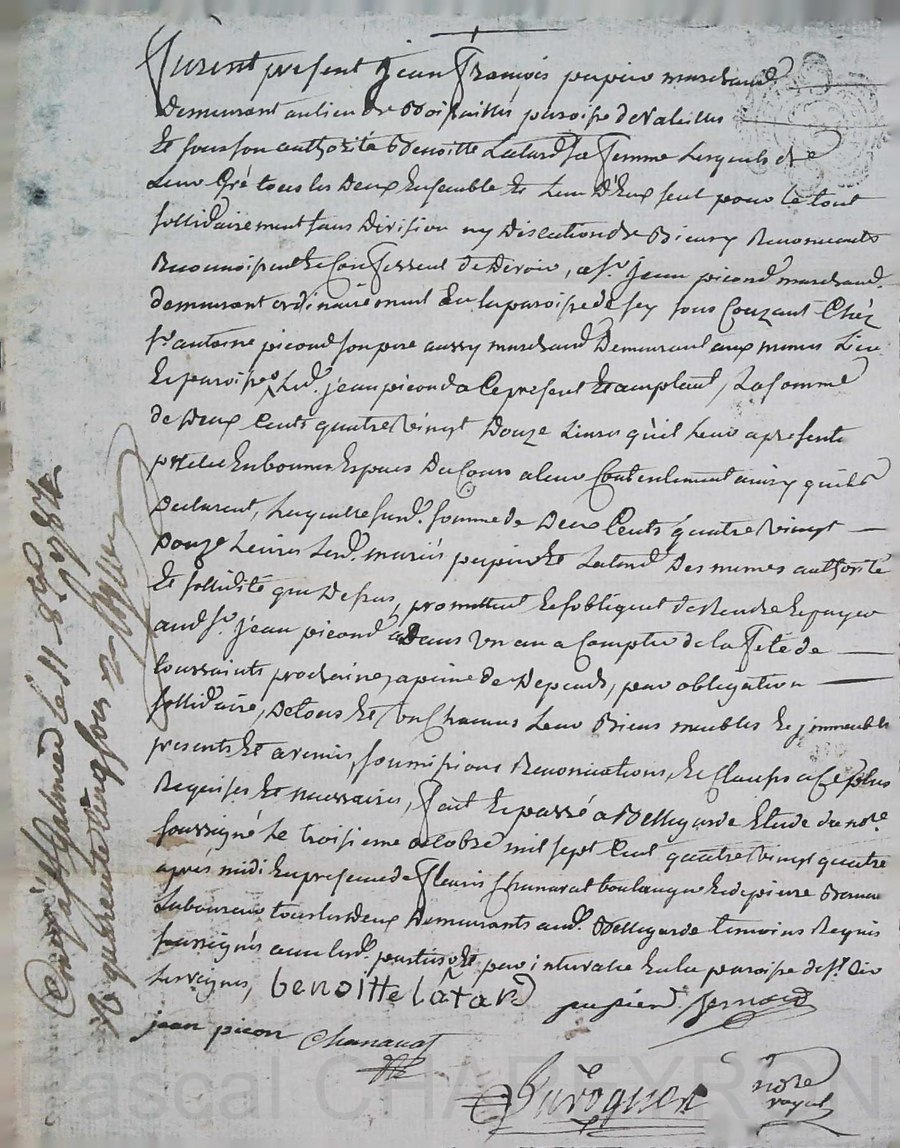 furent present jean François pupier marchand
Demeurant au lieu de Boisailles paroisse de Valeilles
Et sous son authorité Benoitte Latard sa femme Lesquels de
Leur Gré tous les Deux Ensemble Et L'un D'Eux seul pour le tout
sollidairement sans Division ny Discution de Biens y Renonceants
Reconnoissent Et Confessent de Devoir, a sr. jean picond marchand
demeurant ordinairement En la paroisse de sous Couzant Chéz
sr. antoine picond son pere aussy marchand Demeurant aux memes Lieu
Et paroisse, Led. jean picond a Ce present Et acceptant, La somme
de Deux Cents quatre vingt Douze Livres qu'il Leur a presente
pretée En bonnes Espèces Du Cours a leur Contentement ainsy qu'ils
Declarent, Laquelle susd. somme de Deux Cents quatre vingt
Douze Livres Lesd. mariés pupier Et Latard Des memes authorité
Et sollidité que Dessus, promettent Et s'obligent de Rendre Et payer
aud. sr. jean picond Dans Un an a Compter de la Fête de
toussaints prochaine, a peine de Depends, pour obligation
sollidaire, De tous Et Un Chacuns Leur Biens meubles Et jmmeubles
presents Et avenir, soumissions Renonciations, Et Clauses a Ce plus
Requises Et necessaires, fait Et passé a Bellegarde Etude du nore.
soussigné Le troisieme octobre mil sept Cent quatre vingt quatre
après midi En presence de fleuris Chanavat boulanger Et de pierre
Laboureur tous les Deux Demeurants aud. Bellegarde temoins Requis
soussignés avec Lesd. parties Et par intervalle En la paroisse de st. Cir
Les vignes, benoitte Lâtard pupier
jean picon Chanavat
Duvognon nore
royal
Con.lé a st Galmier le 11 8bre 1784
R quarente Cinq sous
Pascal CHARTEYRON